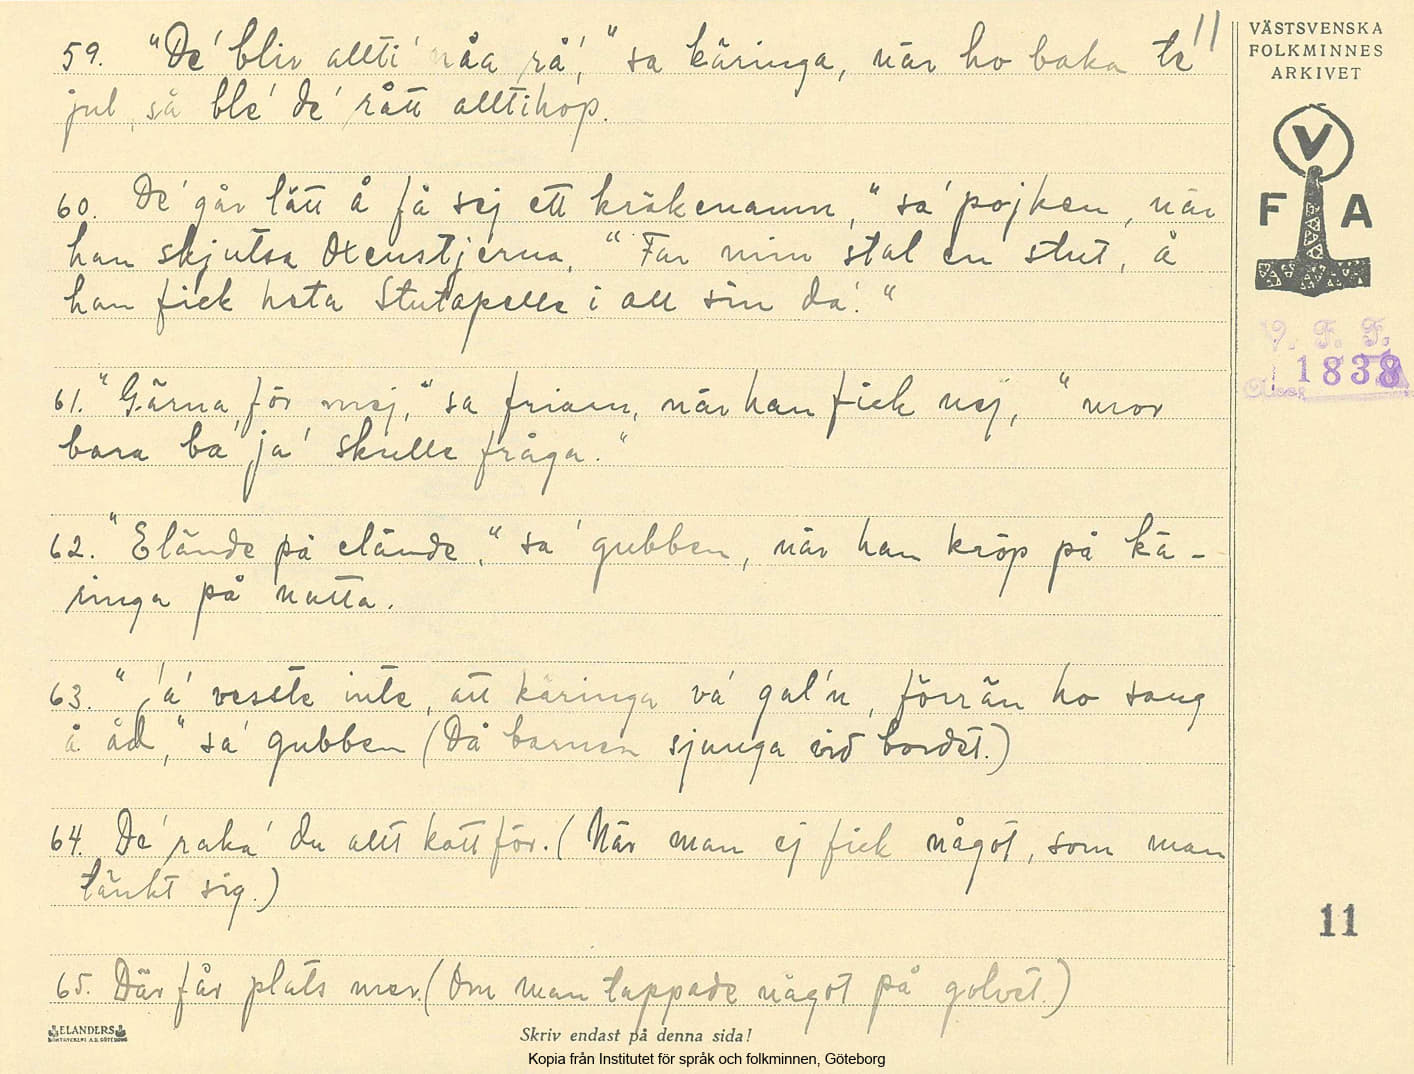 11
59. "De' bliv allti' nåa rå'," sa käringa, när ho baka te'
jul, så ble' de' rått alltihop.
60. De' går lätt å få sej ett kräkenamn," sa' pojken, när
han skjutsa Oxenstjerna. "Far min stal en stut, å
han fick heta Stutapelle i all sin da'."
61. "Gärna för mej," sa friarn, när han fick nej, " mor
bara ba' ja' skulle fråga."
62. "Elände på elände," sa' gubben, när han kröp på kä-
ringa på natta.
63. " ja' vesste inte, att käringa va' gal'n, förrän ho sang
å åd," sa' gubben (Då barnen sjunga vid bordet.)
64. De' raka' du allt katt för. (När man ej fick något, som man
tänkt sig.)
65. Där får plats mer. (Om man tappade något på golvet.)
VÄSTSVENSKA
FOLKMINNES
ARKIVET
V
F A
V. F. F.
1838
11
ELANDERS
Skriv endast på denna sida!
Kopia från Institutet för språk och folkminnen, Göteborg